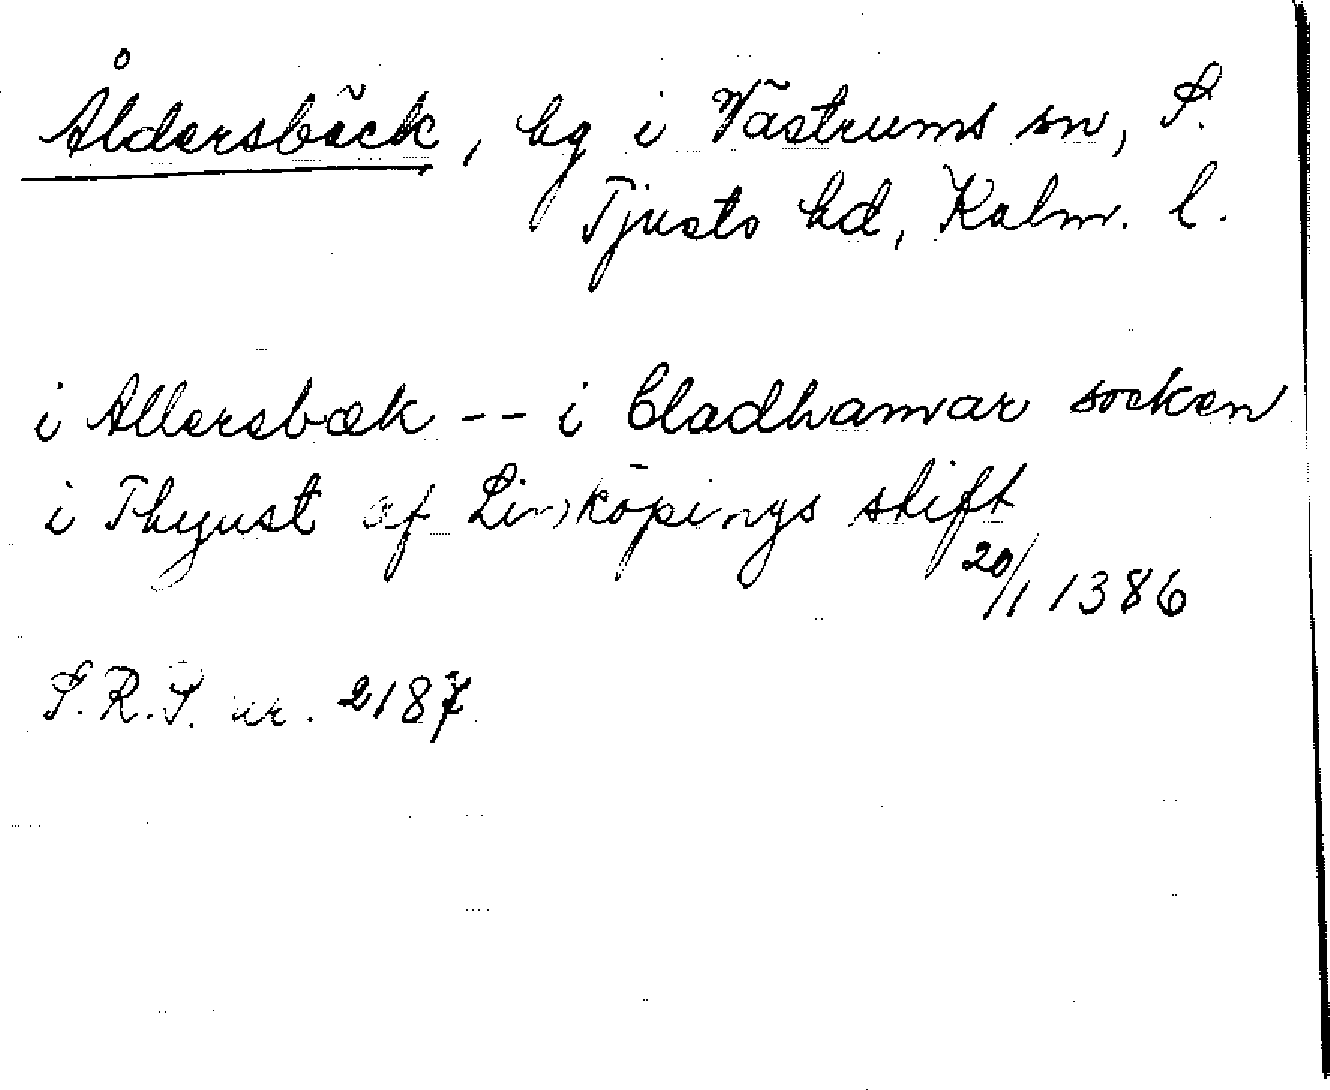 Åldersbäck, hg i Västrums sn, S.
Tjusts hd, Kalm. l.
i Allersbæk -- i Cladhamar socken
i Thyust af Linköpings stift
20/1 1386
S.R.S. nr. 2187